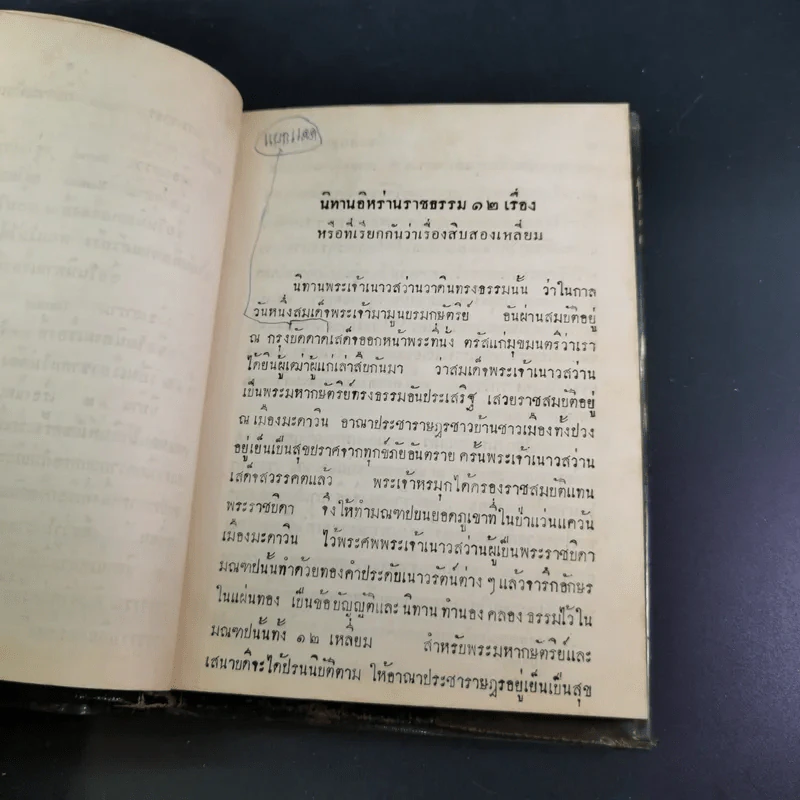 นิทานอิหร่านราชธรรม ๑๒ เรื่อง
หรือที่เรียกกันว่าเรื่องสิบสองเหลี่ยม
นิทานพระเจ้าเนาวสว่านวาดินทรงธรรมนั้น ว่าในกาล
วันหนึ่งสมเด็จพระเจ้ามามูนบรมกษัตริย์ อันผ่านสมบัติอยู่
ณ กรุงบัดดาดเสด็จออกหน้าพระที่นั่ง ตรัสแก่มุขมนตรีว่าเรา
ได้ยินผู้เฒ่าผู้แก่เล่าสืบกันมา ว่าสมเด็จพระเจ้าเนาวสว่าน
เป็นพระมหากษัตริย์ทรงธรรมอันประเสริฐ เสวยราชสมบัติอยู่
ณ เมืองมะดาวิน อาณาประชาราษฎรชาวบ้านชาวเมืองทั้งปวง
อยู่เย็นเป็นสุขปราศจากทุกข์ภัยอันตราย ครั้นพระเจ้าเนาวสว่าน
เสด็จสวรรคตแล้ว พระเจ้าหรมุกได้ครองราชสมบัติแทน
พระราชบิดา จึงให้ทำมณฑปบนยอดภูเขาที่ในย่าแว่นแคว้น
เมืองมะดาวิน ไว้พระศพพระเจ้าเนาวสว่านผู้เป็นพระราชบิดา
มณฑปนั้นทำด้วยทองคำประดับเนาวรัตน์ต่าง ๆ แล้วจารึกอักษร
ในแผ่นทอง เป็นข้อบัญญัติและนิทานทำนองคลองธรรมไว้ใน
มณฑปนั้นทั้ง ๑๒ เหลี่ยม สำหรับพระมหากษัตริย์และ
เสนาบดีจะได้ปรนนิบัติตาม ให้อาณาประชาราษฎรอยู่เย็นเป็นสุข